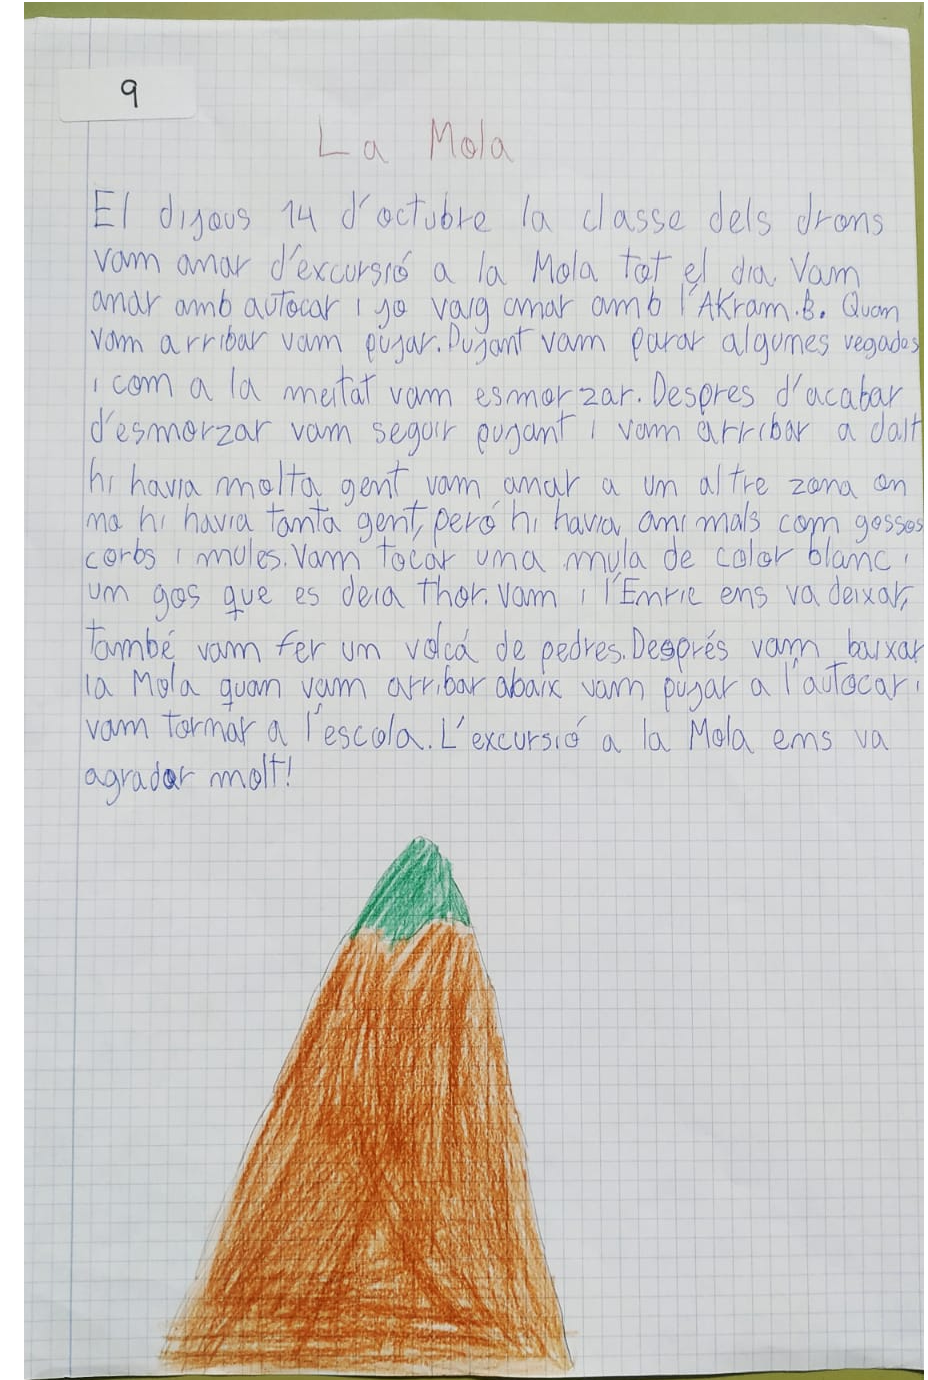 9
La Mola
El dijous 14 d'octubre la classe dels drons
vam anar d'excursió a la Mola tot el dia. Vam
anar amb autocar i jo vaig anar amb l'Akram.B. Quan
vam arribar vam pujar. Pujant vam parar algunes vegades
i com a la meitat vam esmorzar. Despres d'acabar
d'esmorzar vam seguir pujant i vam arribar a dalt
hi havia molta gent, vam anar a un altre zona on
no hi havia tanta gent, peró hi havia animals com gossos
corbs i mules. Vam tocar una mula de color blanc i
un gos que es deia thor. Vam i l'Enric ens va deixar,
també vam fer un volcá de pedres. Després vam baixar
la Mola quan vam arribar abaix vam pujar a l'autocar i
vam tornar a l'escola. L'excursió a la Mola ens va
agradar molt!